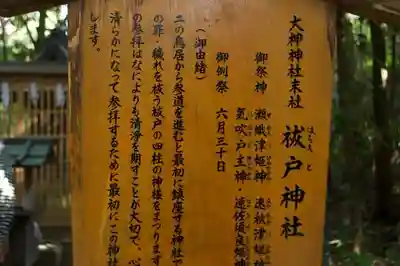 大神神社末社
祓戸神社
はらえど
御祭神 瀬織津姫神・速秋津姫神
氣吹戸主神・速佐須良姫神
御例祭 六月三十日
(御由緒)
二の鳥居から参道を進むと最初に鎮座する神社で
の罪・穢れを祓う祓戸の四柱の神様をまつります
の参拝はなによりも清浄を期すことが大切で、心
清らかになって参拝するために最初にこの神社
します。